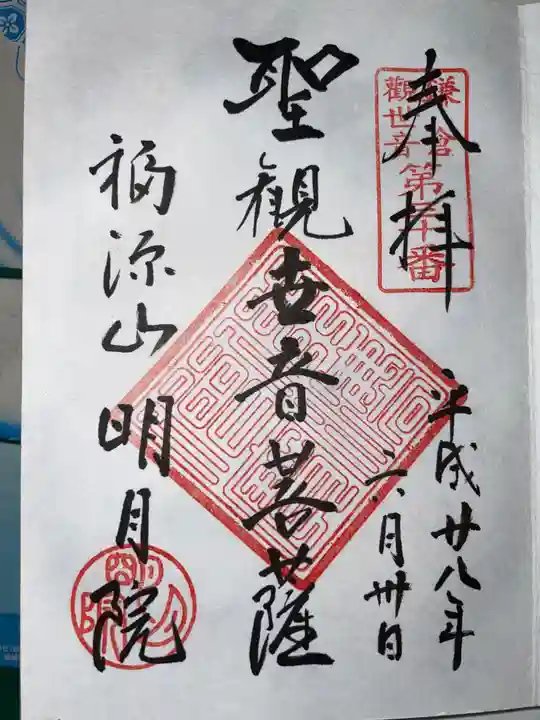 奉拝
鎌倉
觀世音
第三十番
平成廿八年
六月卅日
聖観世音菩薩
福源山明月院